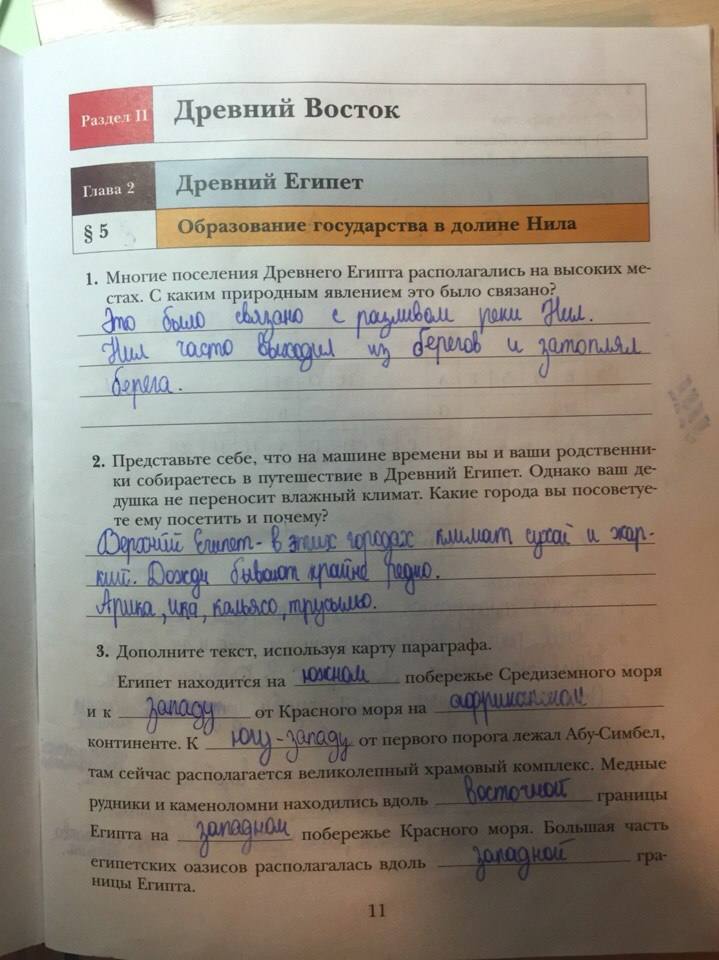 Раздел II
Древний Восток
Глава 2
Древний Египет
§ 5
Образование государства в долине Нила
1. Многие поселения Древнего Египта располагались на высоких ме-
стах. С каким природным явлением это было связано?
Это было связано с разливом реки Нил.
Нил часто выходил из берегов и затоплял
берега.
2. Представьте себе, что на машине времени вы и ваши родственни-
ки собираетесь в путешествие в Древний Египет. Однако ваш де-
душка не переносит влажный климат. Какие города вы посоветуе-
те ему посетить и почему?
Верхний Египет - в этих городах климат сухой и жар-
кий. Дожди бывают крайне редко.
3. Дополните текст, используя карту параграфа.
Египет находится на южном побережье Средиземного моря
и к западу от Красного моря на африканском
континенте. К югу-западу от первого порога лежал Абу-Симбел,
там сейчас располагается великолепный храмовый комплекс. Медные
рудники и каменоломни находились вдоль восточной границы
Египта на западном побережье Красного моря. Большая часть
египетских оазисов располагалась вдоль западной гра-
ницы Египта.
11